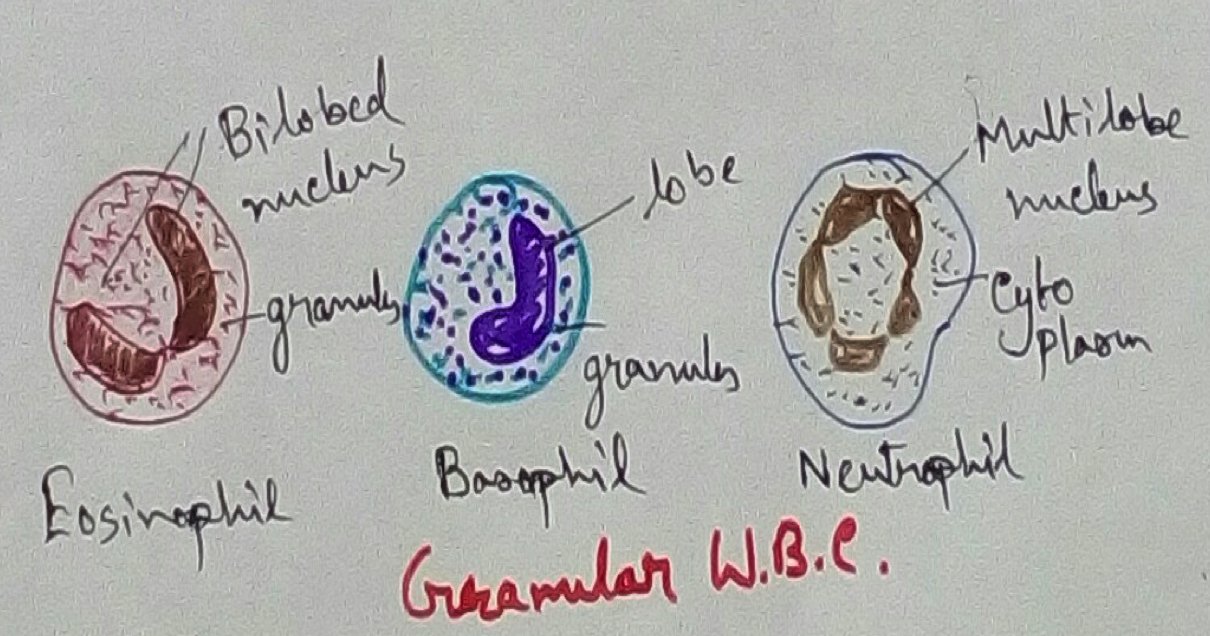 Bilobed
nucleus
granules
Eosinophil
lobe
granules
Basophil
Multilobe
nucleus
Cyto
plasm
Neutrophil
Granular W.B.C.